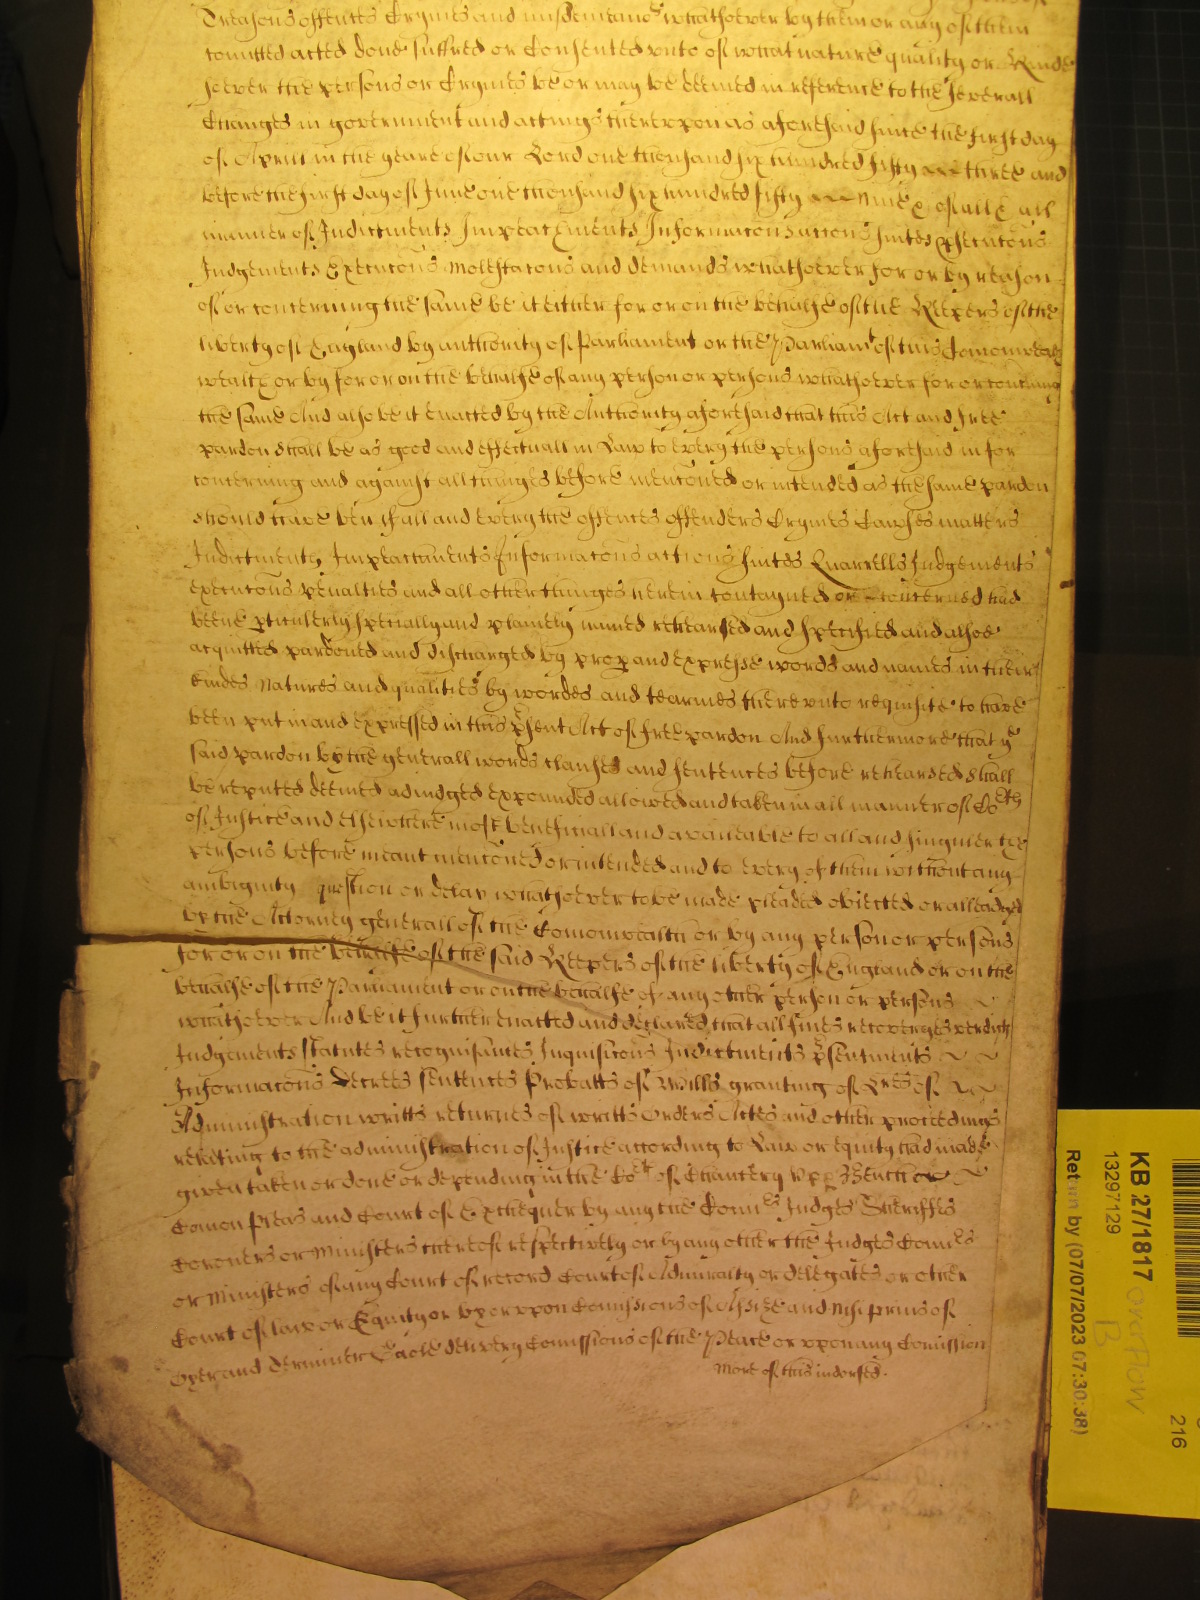 Treasons offences Crymes and misdemeanors whatsoever by them or any of them
comitted acted done suffred or Consented unto of what nature quality or Kinde
soever the persons or Crymes be or may be deemed in reference to the severall
Changes in government and actings thereupon as aforesaid since the first day
of Aprill in the yeare of our Lord one thousand six hundred fifty three and
before the first day of June one thousand six hundred fifty nine & of all & all
manner of Indictments Impeachments Informacons accons suites psecucons
Judgements Execucons molestacons and demands whatsoever for or by reason
of or concerning the same be it either for or on the behalfe of the Keepers of the
liberty of England by authority of Parliament or the Parliamt of this Comonwealth
wealth or by for or on the behalfe of any person or persons whatsoever for or concerning
the same And also be it enacted by the Authority aforesaid that this Act and free
pardon shall be as good and effectuall in Law to every the persons aforesaid in for
concerning and against all thinges before menconed or intended as the same pardon
should have ben if all and every the offences offenders Crymes Causes matters
Indictments Impeachments Informacons actions suites Quarrells Judgements
execucons penalties and all other thinges herein contayned or concerned had
beene pticulerly specially and plainely named rehearsed and specified and alsoe
acquitted pardoned and discharged by proper and expresse words and names in their
kindes natures and qualities by wordes and tearmes thereunto requisite to have
been put in and expressed in this psent Act of free pardon And furthermore that ye
said pardon by the generall words clauses and sentences before rehearsed shall
be reputed deemed adiudged expounded allowed and taken in all manner of Corts
of Justice and elsewhere most beneficiall and availeable to all and singuler the
persons before meant menconed or intended and to every of them without any
ambiguity question or delay whatsoever to be made pleaded obiected or alleadged
by the Attorney generall of the Comonwealth or by any person or persons
for or on the behalfe of the said Keepers of the liberty of England or on the
behalfe of the Parliament or on the behalfe of any other person or persons
whatsoever And be it further enacted and declared that all fines recoveryes verdicts
Judgements statutes recognisances Inquisicons Indictments psentments
Informacons decrees sentences Probatts of Wills granting of Lres of
Administration writts returnes of writts Orders Actes and other proceedings
relating to the administration of Justice according to Law or equity had made
given taken or done or depending in the Cort of Chancery Upper Bench
Comon Pleas and Court of Exchequer by any the Comrs Judges Sheriffs
Coroners or Ministers thereof respectively or by any other the Judges Comrs
or Ministers of any Court of record Court of Admiralty or delegates or other
Court of law or Equity or by or upon Comissions of Assize and nisi prius of
Oyer and derminer Gaole delivery Comissions of the Peace or upon any Comission
more of this indorsed.
KB 27/1817 overflow
B
13297129
Return by (07/07/2023 07:30:38)
216